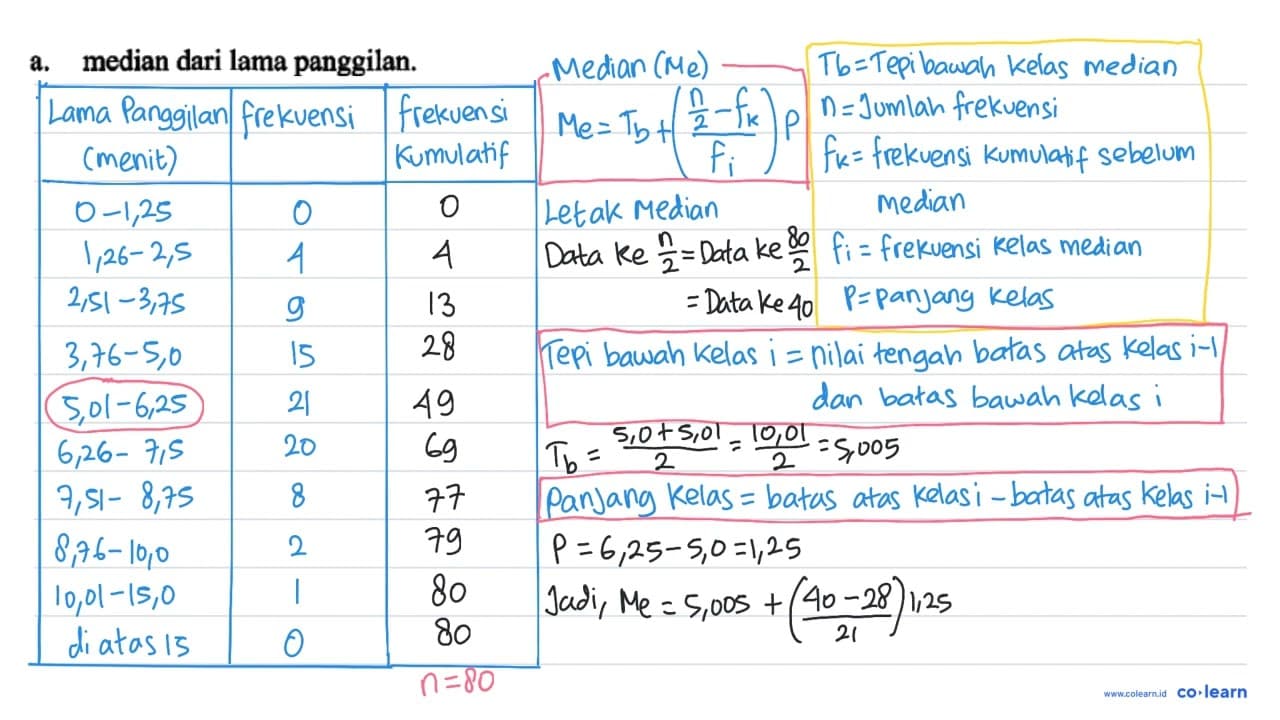 a. median dari lama panggilan.
Lama Panggilan (menit) | frekuensi | frekuensi Kumulatif
0-1,25 | 0 | 0
1,26-2,5 | 4 | 4
2,51-3,75 | 9 | 13
3,76-5,0 | 15 | 28
5,01-6,25 | 21 | 49
6,26-7,5 | 20 | 69
7,51-8,75 | 8 | 77
8,76-10,0 | 2 | 79
10,01-15,0 | 1 | 80
di atas 15 | 0 | 80
n=80
Median (Me)
Me = Tb + ((n/2 - fk)/fi) P
Tb = Tepi bawah kelas median
n = Jumlah frekuensi
fk = frekuensi kumulatif sebelum
median
fi = frekuensi kelas median
P = panjang kelas
Letak Median
Data ke n/2 = Data ke 80/2
= Data ke 40
Tepi bawah kelas i = nilai tengah batas atas kelas i-1
dan batas bawah kelas i
Tb = (5,0+5,01)/2 = 10,01/2 = 5,005
Panjang kelas = batas atas kelas i - batas atas kelas i-1
P = 6,25-5,0 = 1,25
Jadi, Me = 5,005 + ((40-28)/21) 1,25
www.colearn.id co·learn